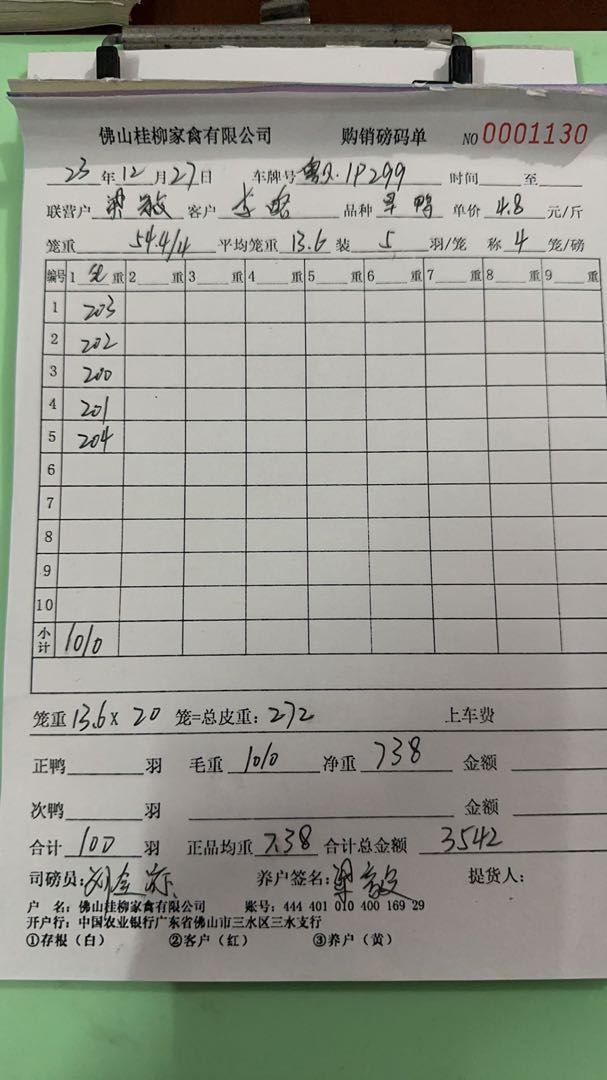 佛山桂柳家禽有限公司 购销磅码单 NO 0001130
23年12月27日 车牌号 1P299 时间 至
联营户 梁敏 客户 李 品种 旱鸭 单价 4.8 元/斤
笼重 54.4/4 平均笼重 13.6 装 5 羽/笼 称 4 笼/磅
编号 1 重 2 重 3 重 4 重 5 重 6 重 7 重 8 重 9 重
1 203
2 202
3 200
4 201
5 204
6
7
8
9
10
小计 1010
笼重 13.6 x 20 笼=总皮重: 272 上车费
正鸭 羽 毛重 1010 净重 738 金额
次鸭 羽 金额
合计 100 羽 正品均重 7.38 合计总金额 3542
司磅员: 养户签名: 梁敏 提货人:
户 名: 佛山桂柳家禽有限公司 账号: 444 401 010 400 169 29
开户行: 中国农业银行广东省佛山市三水区三水支行
①存根(白) ②客户(红) ③养户(黄)